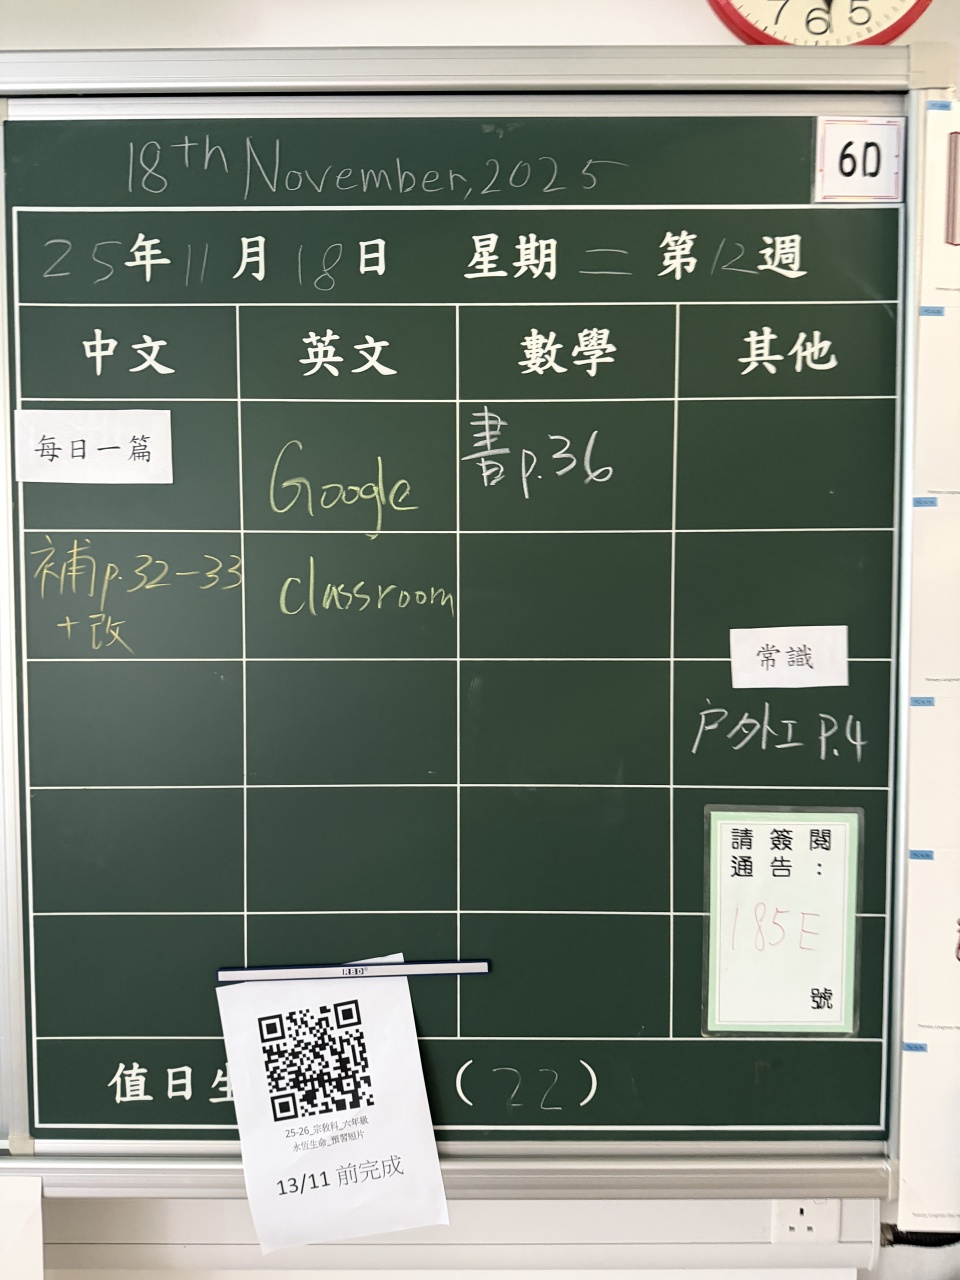 7 6 5
18th November, 2025
6D
25年11月18日 星期二 第12週
中文 英文 數學 其他
每日一篇
Google
書p.36
補p.32-33
+改
classroom
常識
户外工 P.4
請簽閱
通告：
185E
號
RBD
25-26_宗教科_六年級
永恆生命_預習短片
13/11 前完成
值日生
(22)